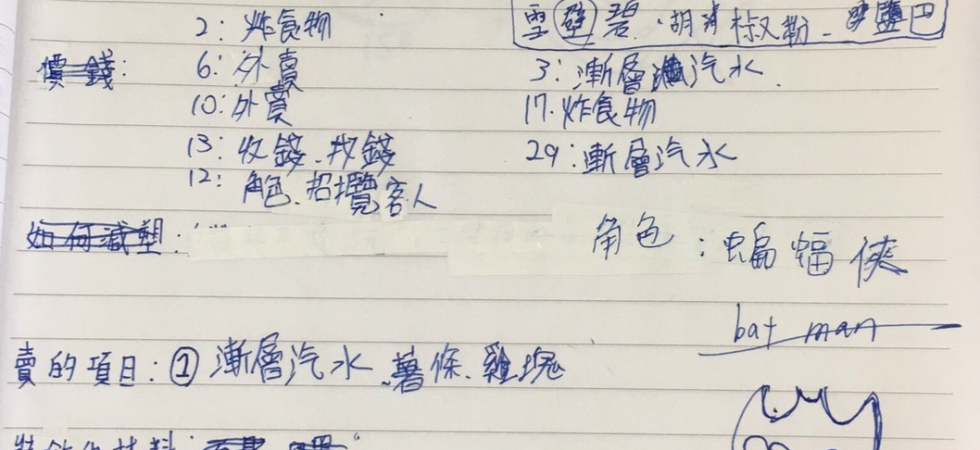 2: 炸食物
雪碧.胡椒粉-鹽巴
價錢: 6: 外賣
3: 漸層汽水
10: 外賣
17. 炸食物
13: 收錢、找錢
29: 漸層汽水
12: 角色、招攬客人
如何減塑:
角色:蝙蝠俠
bat man
賣的項目:① 漸層汽水、薯條、雞塊